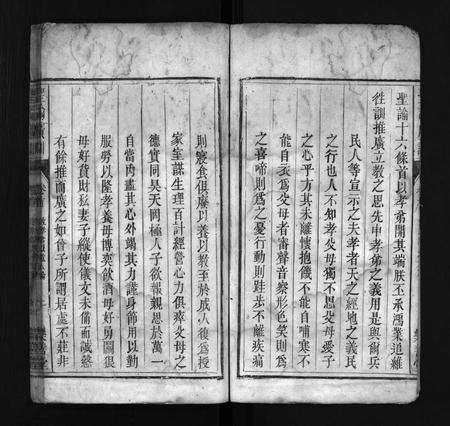 聖諭十六條首以孝弟開其端朕丕承鴻業追維
徃訓推廣立教之思先申孝弟之義用是與爾兵
民人等宣示之夫孝者天之經地之義民
之行也人不知孝父母獨不思父母愛子
之心乎方其未離懷抱饑不能自哺寒不
能自衣為父母者審聲音察形色笑則為
之喜啼則為之憂行動則跬步不離疾痛
則寢食俱廢以養以教至於成人復為授
家室謀生理百計經營心力俱瘁父母之
德實同昊天罔極人子欲報親恩於萬一
自當內盡其心外竭其力謹身節用以勤
服勞以隆孝養毋博奕飲酒毋好勇鬬狠
毋好貨財私妻子縱使儀文未備而誠慤
有餘推而廣之如曾子所謂居處不莊非
聖諭廣訓